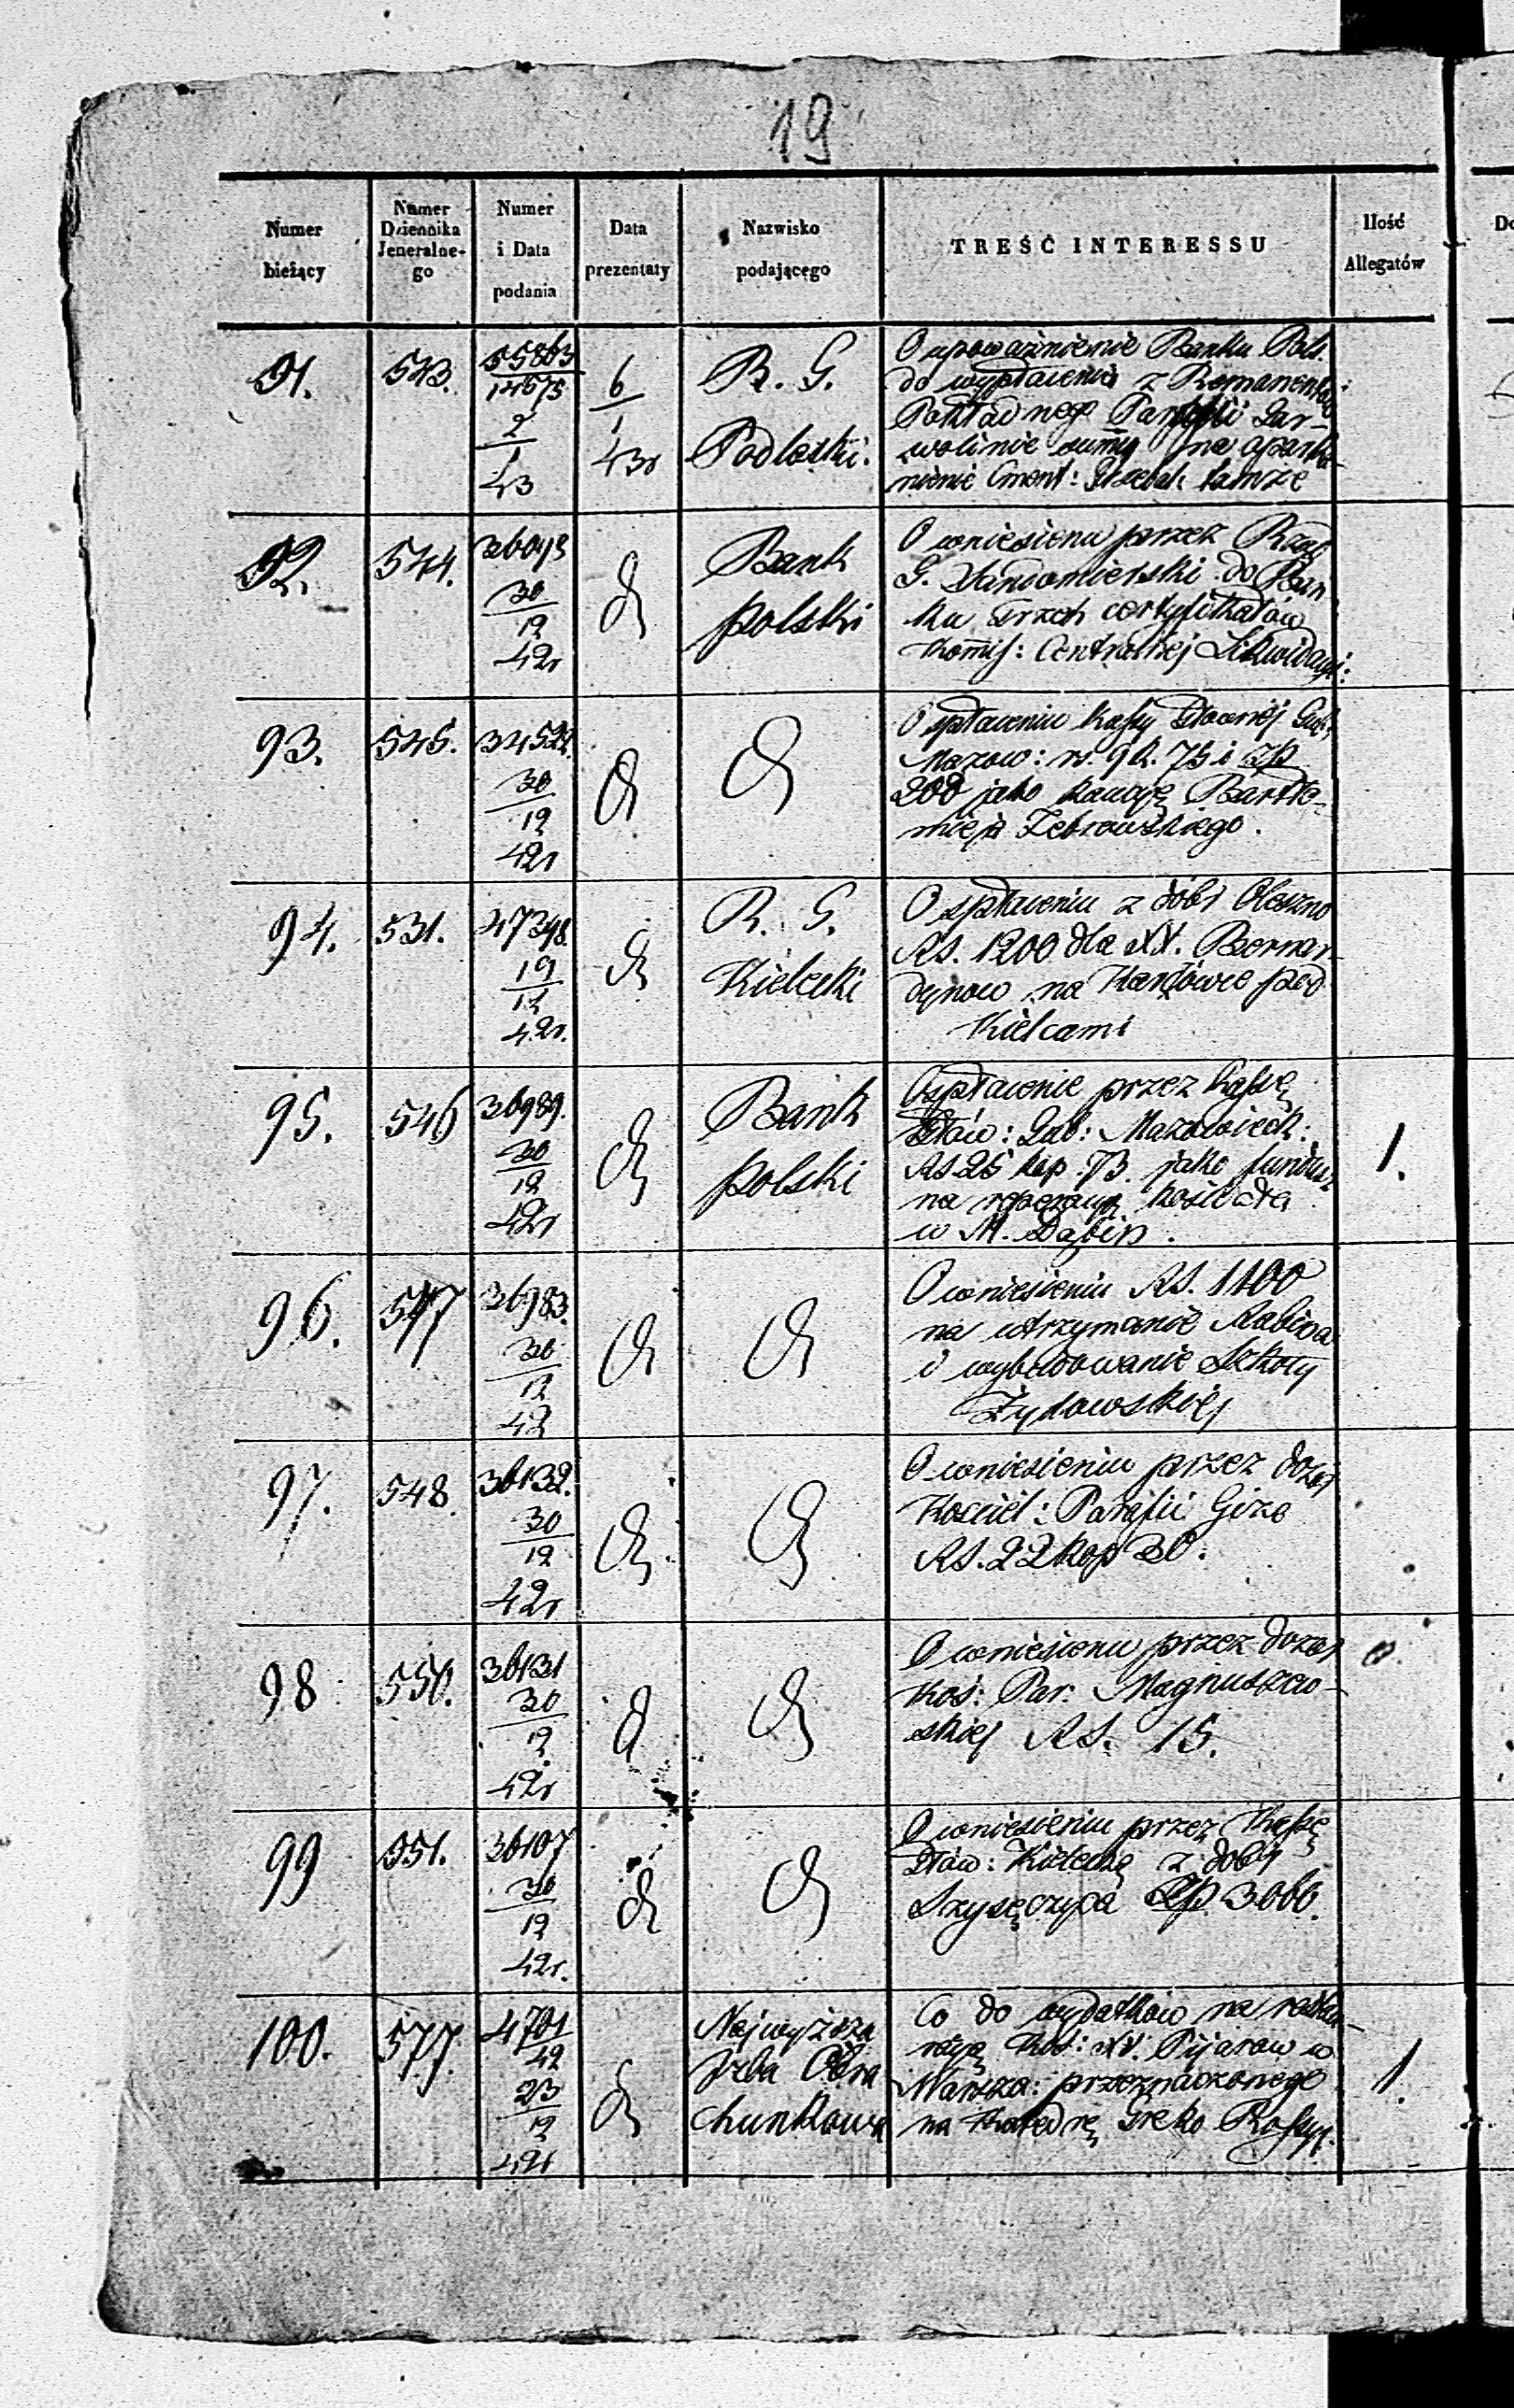 19
Numer bieżący
Numer Dziennika Jeneralne-go
Numer i Data podania
Data prezentaty
Nazwisko podającego
TREŚĆ INTERESSU
Ilość Allegatów
91.
543.
55863
14575
2
1
43
6
1
43r
R. G.
Podlaski.
O upoważnienie Banku Pols.
do wypłacenia z Remanentów
Pokładnego Parafii Gar-
wolinie summy na oparka-
nienie Cment: Grzebal: tamże
92.
544.
30
12
42r
d
Bank
polski
O wniesieniu przez Rząd
G. Sandomierski do Ban
ku trzech certyfikatów
Kommis: Centralnej Likwidacyj:
93.
545.
34522.
30
12
42r
d
d
O spłaceniu Kassy Głównej Gub.
Mazow: rs. 9 k. 75 i zp
200 jako kaucyę Bartło-
mieja Żebrowskiego.
94.
531.
47398.
19
12
42r.
d
R. G.
Kielecki
O spłaceniu z dóbr Oleszno
RS. 1200 dla XX. Bernar-
dynow na Karłówce pod
Kielcami
95.
546
36989.
30
12
42r
d
Bank
polski
O spłacenie przez Kassę
Głów: Gub: Mazowieck:
RS 25 kop. 73. jako fundusz
na reperacyą kościoła
w M. Dąbiu.
1.
96.
547
36983.
30
12
42
d
d
O wniesieniu RS. 1100
na utrzymanie Rabina
i wybudowanie Szkoły
Żydowskiej
97.
548.
36132.
30
12
42r
d
d
O wniesieniu przez dozór
Kościel: Parafii Giże
RS. 22 kop 20.
98
550.
36131
30
12
42r
d
d
O wniesieniu przez dozór
Koś: Par: Magnuszew-
skiej RS. 15.
99
551.
36107
30
12
42r.
d
d
O wniesieniu przez Kassę
Głów: Kielecką z dóbr
Zp 3060.
100.
577.
4701
42
23
12
42r
d
Najwyższa
Izba Obra
chunkowa
Co do wydatków na restau-
racyą Koś: XX. Pijarow w
Warsza: przeznaczonego
na Katedrę Greko Rossyj.
1.